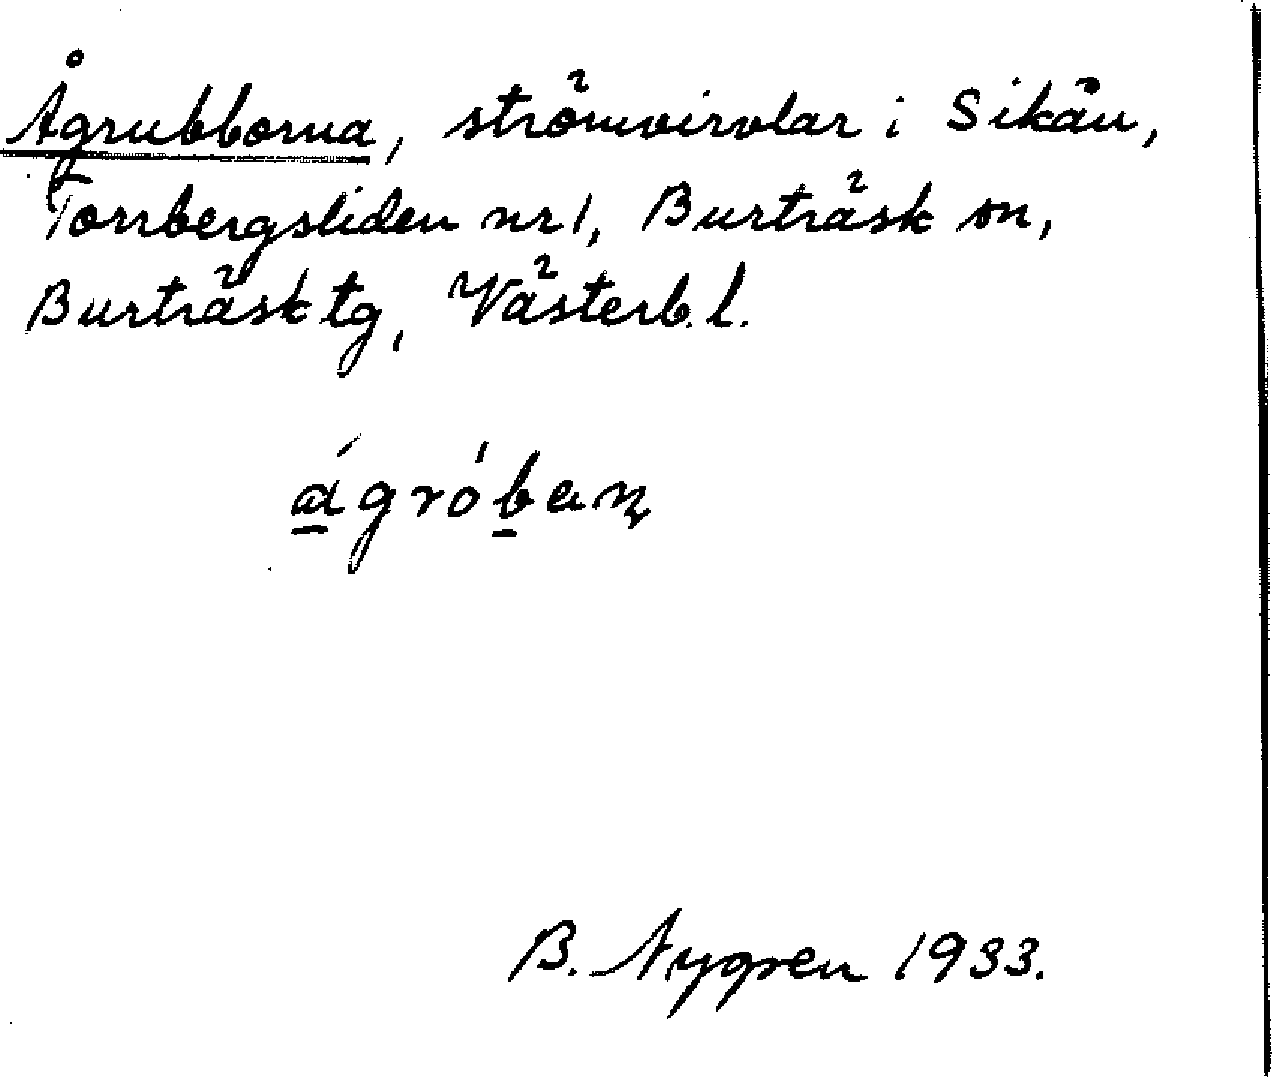 Ågrubborna, strömvirvlar i Sikån,
Torrbergsliden nr 1, Burträsk sn,
Burträsk tg, Västerb. l.
ágróban̥
B. Nygren 1933.